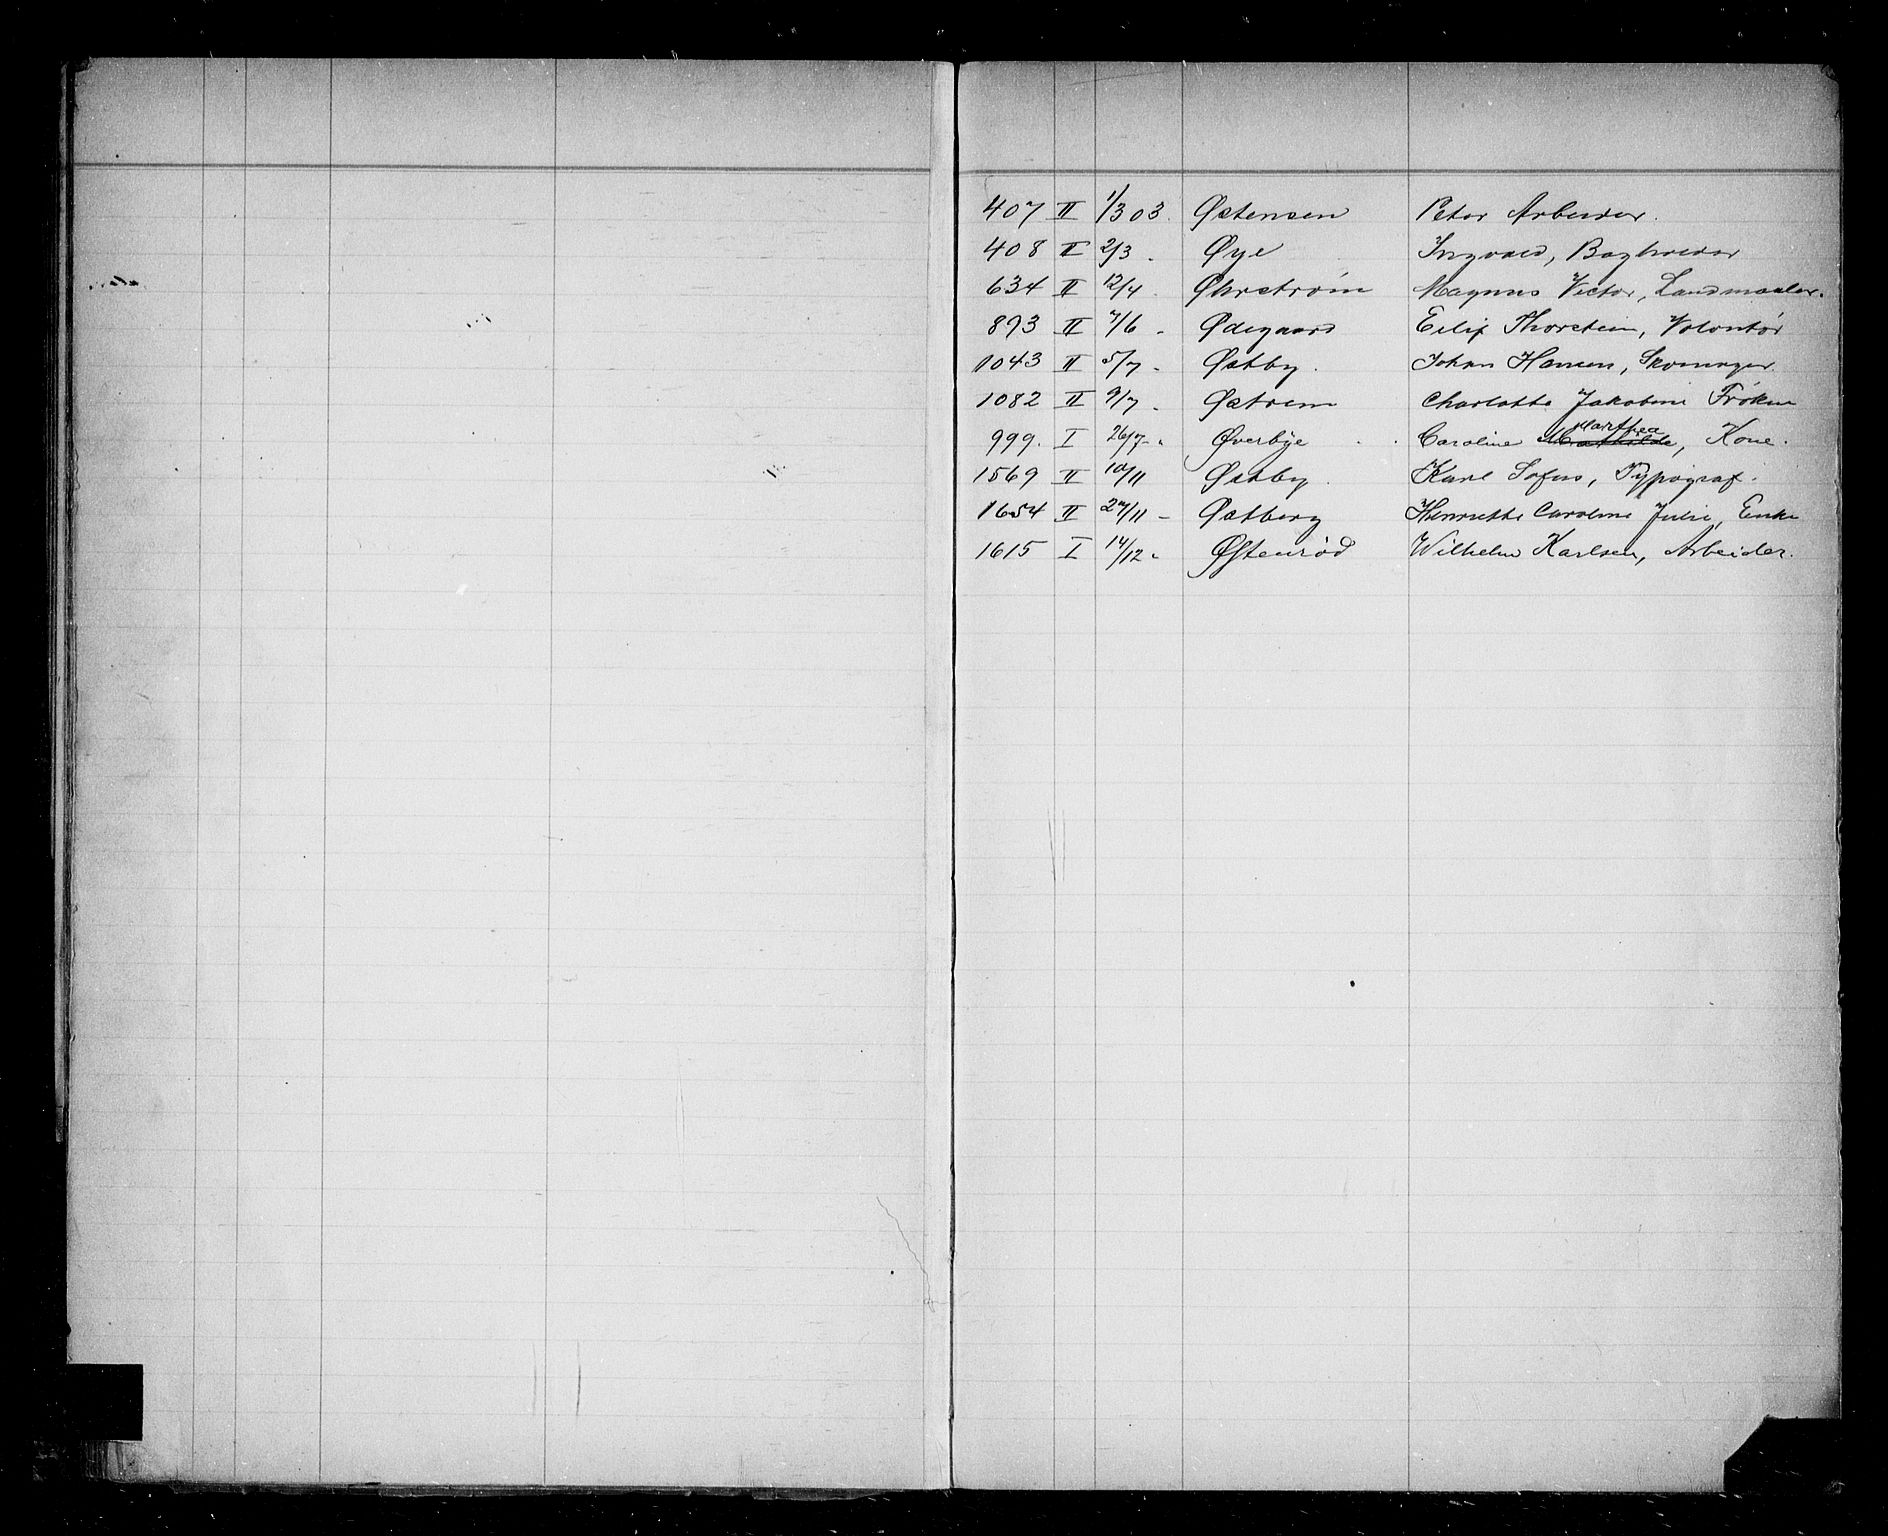 407 II 1/3 03. Østensen Peter Arbeider.
408 II 2/3 . Øye Ingvald, Boghvider
634 II 12/4 . Øhrstrøm Magnus Victor, Landmaaler.
893 II 7/6 . Ødegaard Eilif Thorstein, Volontør
1043 II 5/7 . Østby . Johan Hansen, Skomager.
1082 II 9/7 . Østrem Charlotte Jakobine Frøken
999. I 26/7 - " Øverbye . . Caroline Marthea, Kone.
1569 II 10/11 Østby . Karl Sofus, Typograf.
1654 II 27/11 - Østberg Henriette Caroline Julie, Enke
1615 I 14/12 " Østenrød Wilhelm Karlsen, Arbeider.